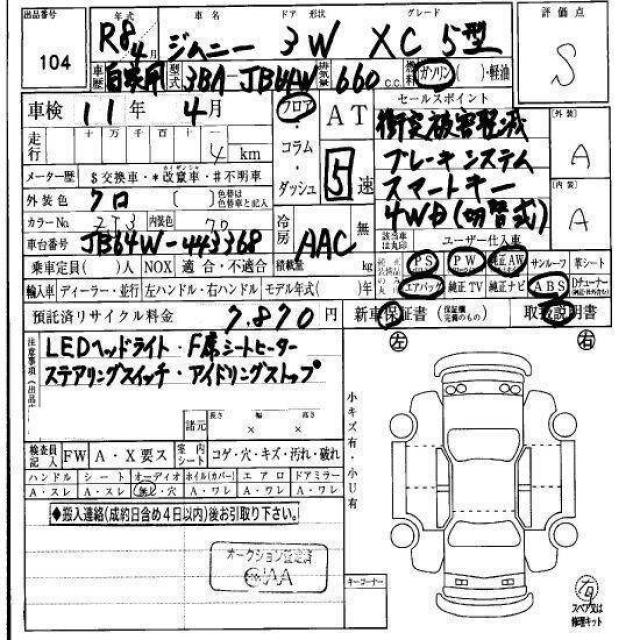 出品番号 年式 車名 ドア 形状 グレード 評価点
104 R8 4月 ジムニー 3W XC 5型 S
車歴 自家用 型式 3BA-JB64W 排気量 660 c.c. 燃料 ガソリン( )・軽油
車検 11年 4月 フロア・コラム・ダッシュ AT 5速
セールスポイント
衝突被害軽減
ブレーキシステム
スマートキー
4WD(切替式)
外装 A
内装 A
走行 十万 万 千 百 十 4 km
メーター歴 $交換車・*改竄車・#不明車
外装色 クロ 〔 〕色替は色替車と記入
カラーNo. ZJ3 内装色 クロ
車台番号 JB64W-443368
冷房 AAC 無
該当車は丸印 ユーザー仕入車
乗車定員( )人 NOX 適合・不適合 積載量 kg
PS PW 純正AW サンルーフ 革シート
輸入車 ディーラー・並行 左ハンドル・右ハンドル モデル年式( )年
エアバック 純正TV 純正ナビ ABS
預託済リサイクル料金 7,870 円
新車保証書(保証継続完備のもの) 取扱説明書
左 右
注意事項
LEDヘッドライト・F席シートヒーター
ステアリングスイッチ・アイドリングストップ
諸元 長さ 幅 高さ
× ×
小キズ有・小U有
検査員記入 FW A・X要ス 室内シート コゲ・穴・キズ・汚れ・破れ
ハンドル シート オーディオ ホイル(カバー) エアロ ドアミラー
A・スレ A・スレ 無・穴 A・ワレ A・ワレ A・ワレ
◆搬入連絡(成約日含め4日以内)後お引取り下さい。
オークション査定済
キーコーナー
右
スペア又は
修理キット